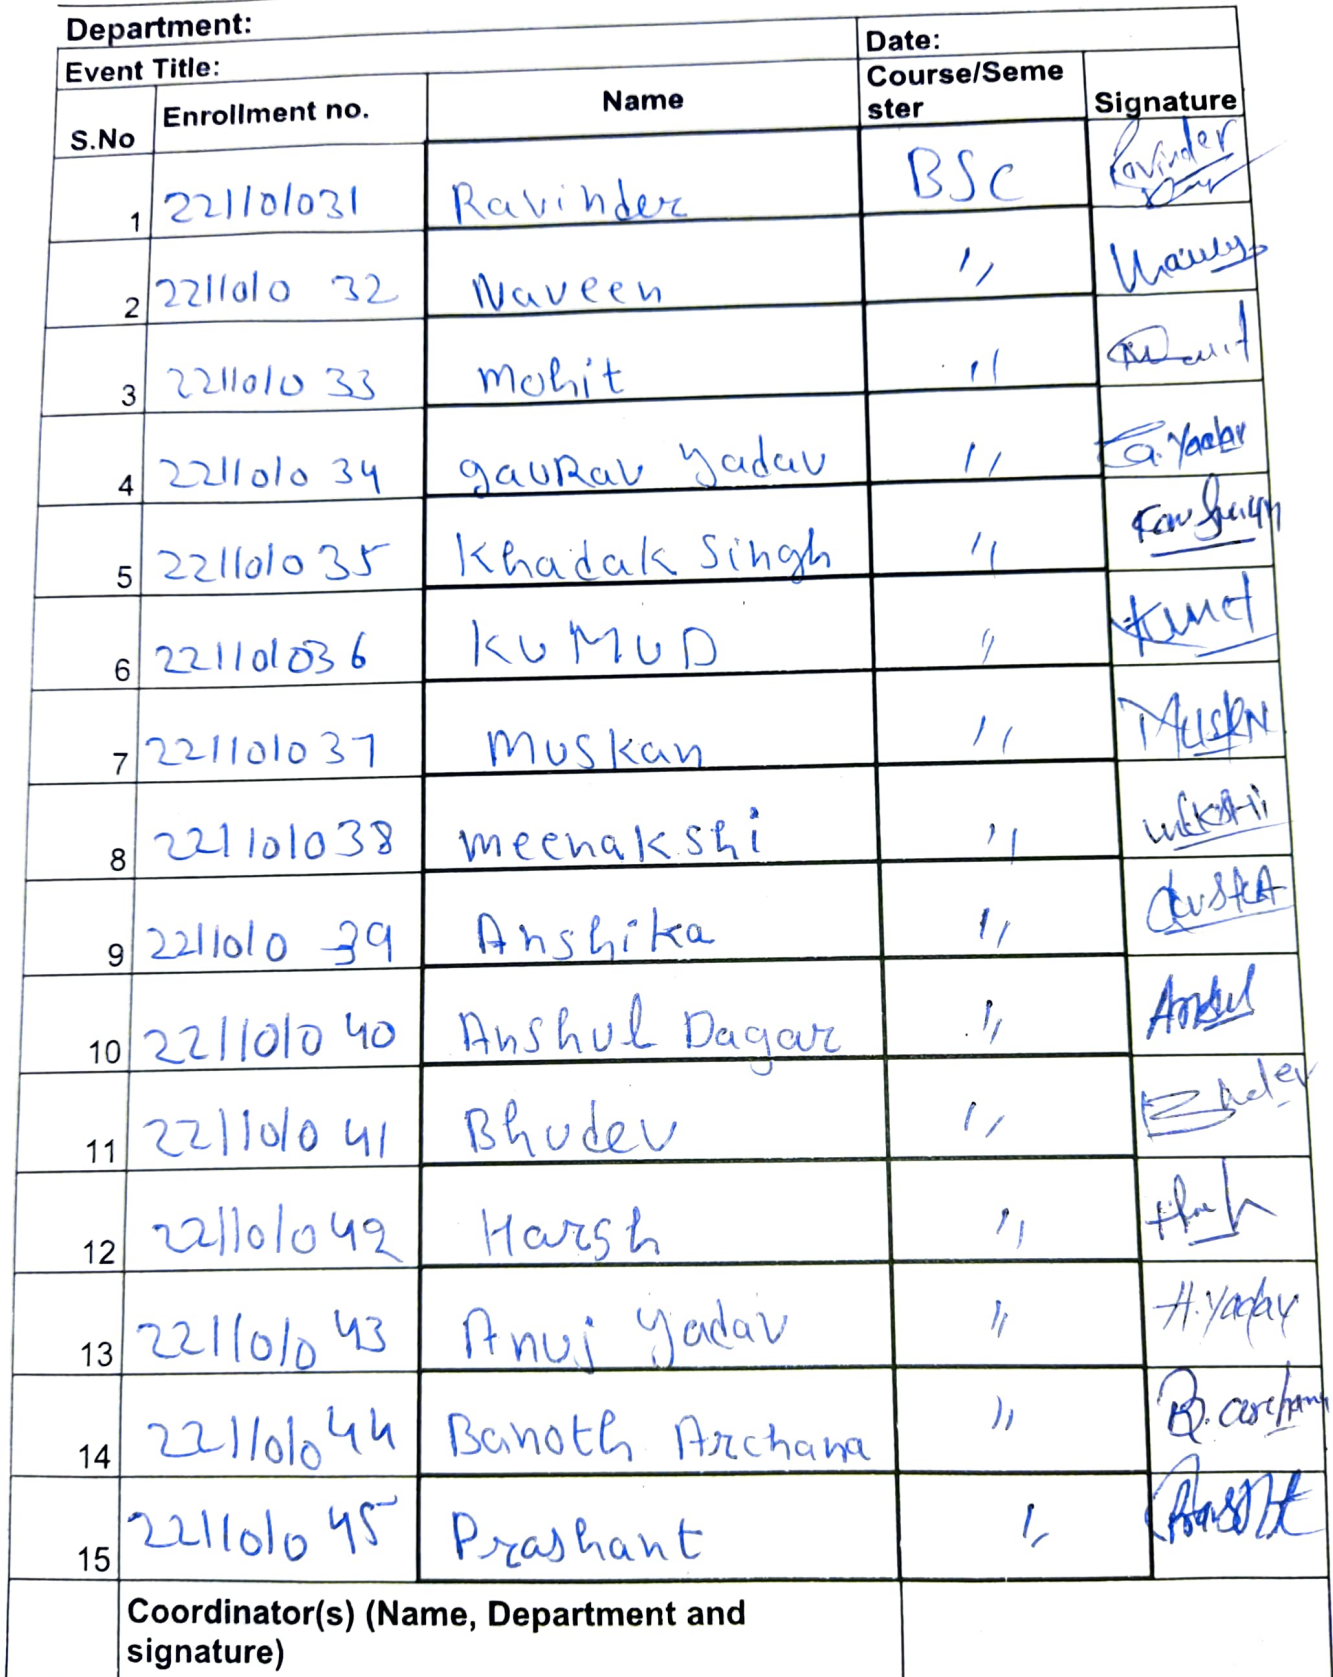 Department:
Event Title: Date:
S.No Enrollment no. Name Course/Seme
ster Signature
1 221101031 Ravinder BSC Ravinder
2 221101032 Naveen "
3 221101033 Mohit "
4 221101034 gauRav yadav " G.Yadav
5 221101035 Khadak Singh "
6 221101036 KUMUD "
7 221101037 Muskan "
8 221101038 meenakshi "
9 221101039 Anshika "
10 221101040 Anshul Dagar " Anshul
11 221101041 Bhudev "
12 221101042 Harsh "
13 221101043 Anuj yadav " A.Yadav
14 221101044 Banoth Archana " B.archana
15 221101045 Prashant "
Coordinator(s) (Name, Department and
signature)